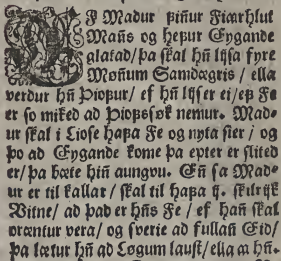 EF Madur finnur Fiærhlut
Mañs og hefur Eygande
glatad/ þa skal hñ lijsa fyre
Moñum Samdægris / ella
verdur hñ Þiofur/ ef hñ lijser ei/ ef Fe
er so miked ad Þiofessøk nemur. Mad-
ur skal i Liose hafa Fe og nyta sier / og
þo ad Eygande kome þa epter er slited
er/ þa bæte hiñ aungvu. Eñ sa Mad-
ur er til kallar/ skal til hafa ij. skilrijk
Vitne/ ad þad er hñs Fe / ef hañ skal
oræntur vera/ og sverie ad fullañ Eid/
þa lætur hiñ ad Løgum laust/ ella æ hñ-